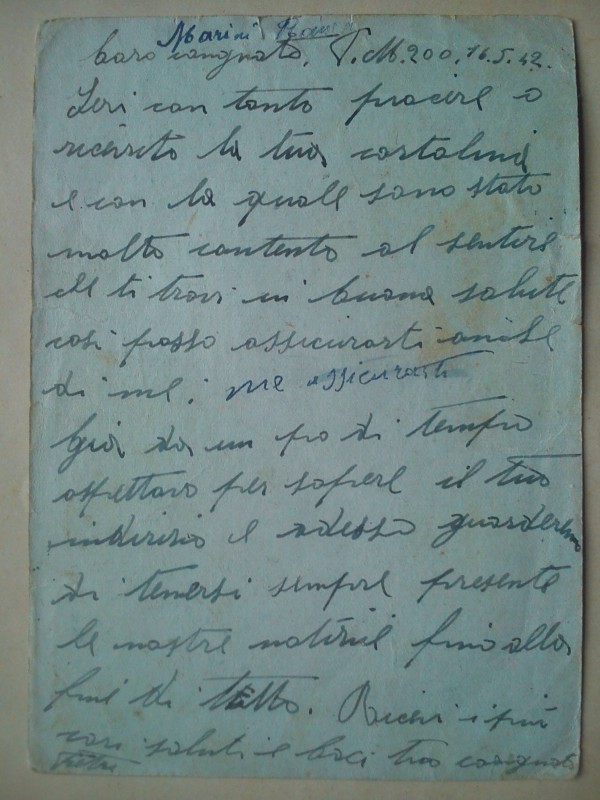 Marini
caro congnato, P.M. 200, 16.5.42.
Ieri con tanto piacere o
ricevuto la tua cartolina
e con la quale sono stato
molto contento al sentire
che ti trovi in buona salute
cosi posso assicurarti anche
di me; me assicurarti
Già da un po di tempo
aspettavo per sapere il tuo
indirizio e adesso guarderemo
di tenersi sempre presente
le nostre notizie fino alla
fine di tutto. Ricevi i più
cari saluti e baci tuo congnato